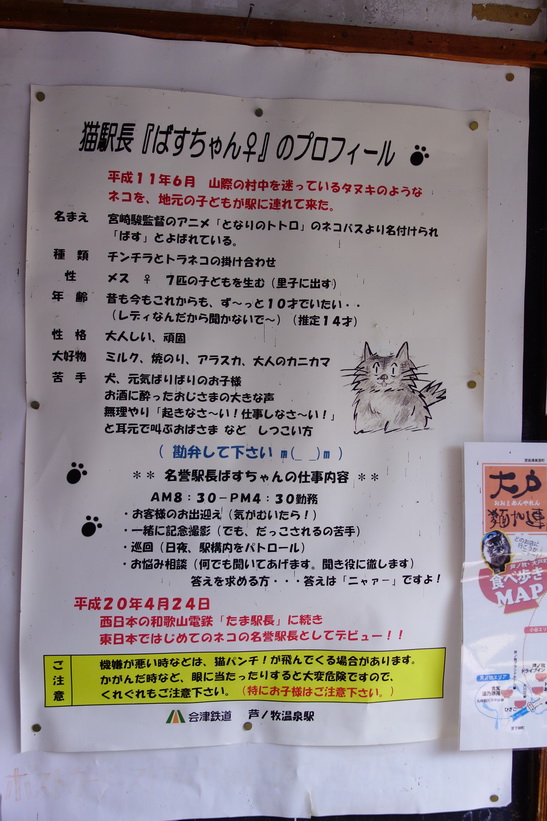 猫駅長『ばすちゃん♀』のプロフィール
平成11年6月　山際の村中を迷っているタヌキのような
ネコを、地元の子どもが駅に連れて来た。
名まえ　宮崎駿監督のアニメ「となりのトトロ」のネコバスより名付けられ
「ばす」とよばれている。
種　類　チンチラとトラネコの掛け合わせ
性　メス　♀　7匹の子どもを生む（里子に出す）
年　齢　昔も今もこれからも、ず～っと10才でいたい・・
（レディなんだから聞かないで～）（推定14才）
性　格　大人しい、頑固
大好物　ミルク、焼のり、アラスカ、大人のカニカマ
苦　手　犬、元気ばりばりのお子様
お酒に酔ったおじさまの大きな声
無理やり「起きなさ～い！仕事しなさ～い！」
と耳元で叫ぶおばさま　など　しつこい方
（ 勘弁して下さい m(_ _)m ）
＊＊ 名誉駅長ばすちゃんの仕事内容 ＊＊
AM8：30－PM4：30勤務
・お客様のお出迎え（気がむいたら！）
・一緒に記念撮影（でも、だっこされるの苦手）
・巡回（日夜、駅構内をパトロール）
・お悩み相談（何でも聞いてあげます。聞き役に徹します）
答えを求める方・・・答えは「ニャァー」ですよ！
平成20年4月24日
西日本の和歌山電鉄「たま駅長」に続き
東日本ではじめてのネコの名誉駅長としてデビュー！！
ご注意
機嫌が悪い時などは、猫パンチ！が飛んでくる場合があります。
かがんだ時など、眼に当たったりすると大変危険ですので、
くれぐれもご注意下さい。（特にお子様はご注意下さい。）
会津鉄道　芦ノ牧温泉駅
大戸
食べ歩き
MAP